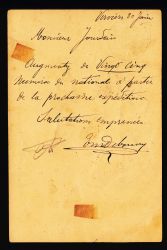 Verviers 20 Juin
Monsieur Jourdain
Augmentez de Vingt Cinq
numéros du national à partir
de la prochaine expédition
Salutations empressées